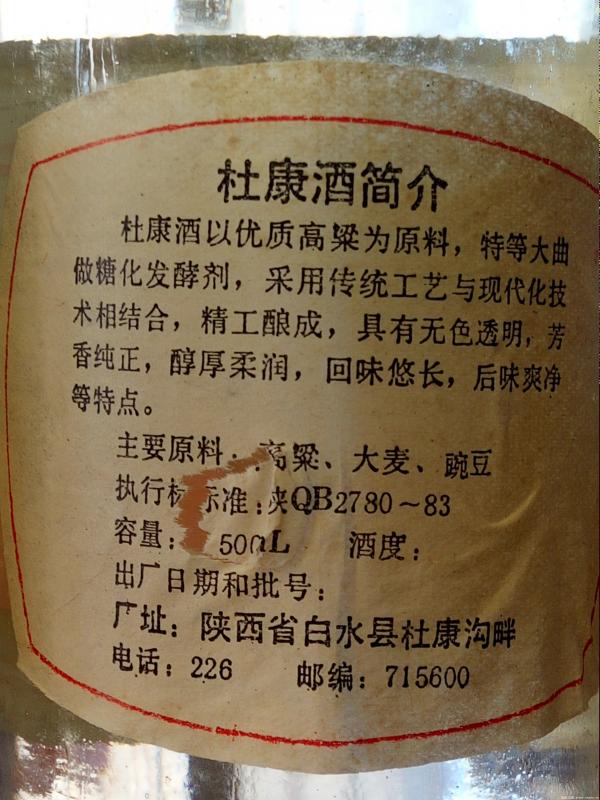 杜康酒简介
杜康酒以优质高粱为原料，特等大曲
做糖化发酵剂，采用传统工艺与现代化技
术相结合，精工酿成，具有无色透明，芳
香纯正，醇厚柔润，回味悠长，后味爽净
等特点。
主要原料：高粱、大麦、豌豆
执行标准：陕QB2780～83
容量：500mL 酒度：
出厂日期和批号：
厂址：陕西省白水县杜康沟畔
电话：226 邮编：715600